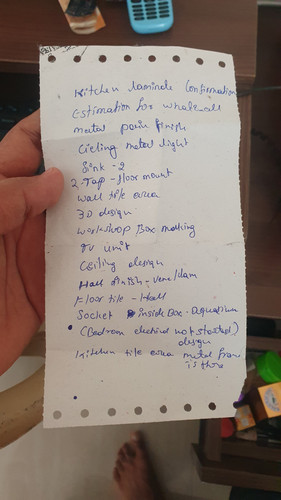 Kitchen laminate Confirmation
Estimation for whole
metal paint finish
Cieling metal light
Sink - 2
2 - Tap - floor mount
wall tile area
3D design
workshop Box making
TV unit
Ceiling design
Hall finish -
Floor tile - Hall
Socket inside Box - aquarium
(Bedroom electrical not started)
design
Kitchen tile area metal frame
is there